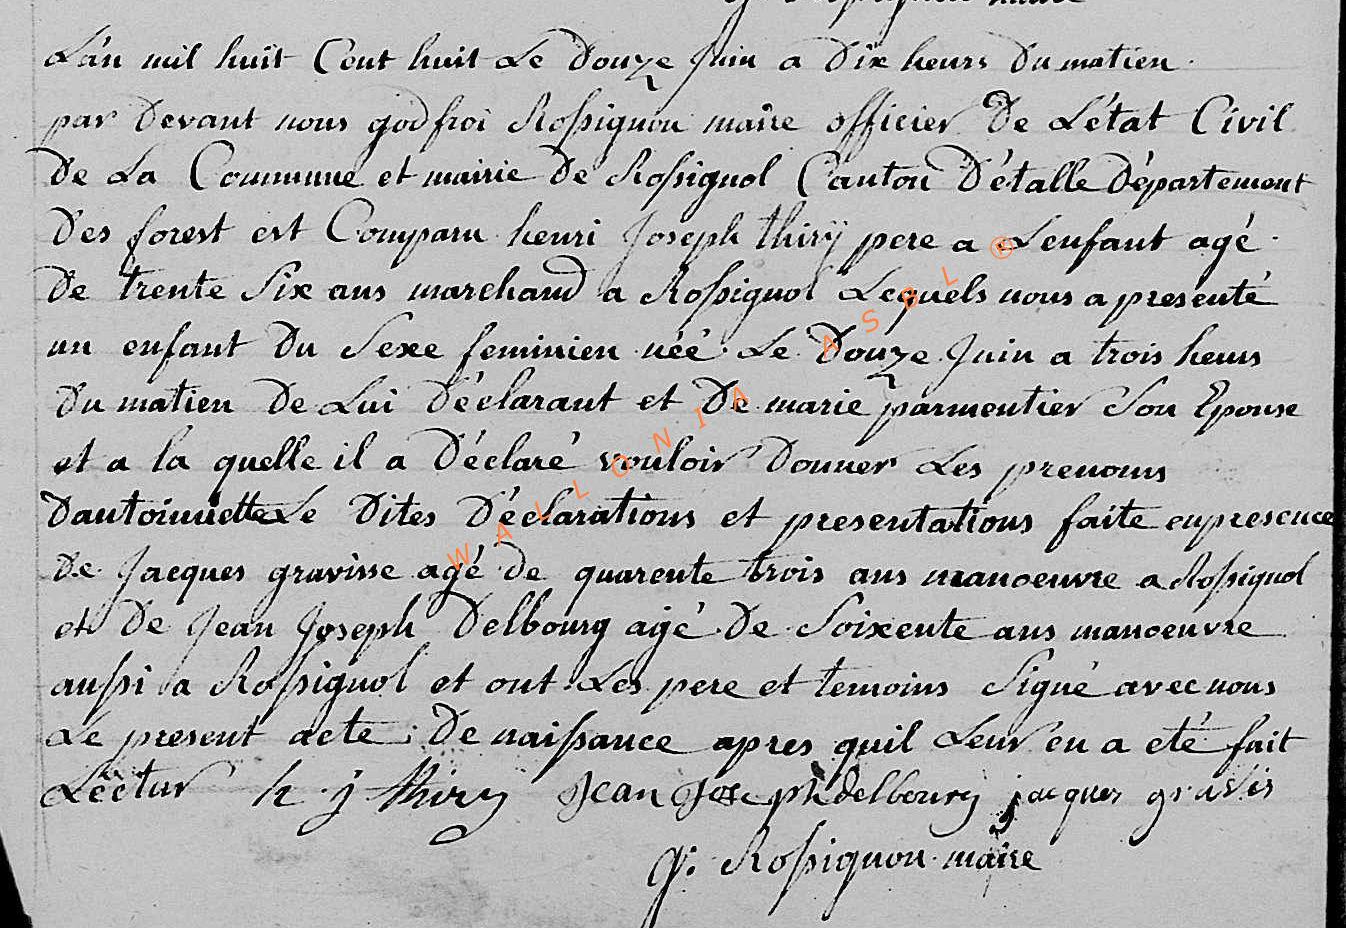 L'an mil huit Cent huit Le Douze Juin a Dix heurs Du matien
par Devant nous godfroi Rossignon maire officier De L'état Civil
De La Commune et mairie De Rossignol Canton D'étalle Département
Des forest est Comparu henri Joseph thirÿ pere a Lenfant agé
De trente Six ans marchand a Rossignol Lequels nous a presenté
un enfant Du Sexe feminien néé Le Douze Juin a trois heurs
Du matien De Lui Déclarant et De marie parmentier Son Epouse
et a la quelle il a Déclaré vouloir Donner Les prenoms
Dantoinnette Le Dites Déclarations et presentations faite enpresence
De Jacques gravisse agé De quarente trois ans manoeuvre a Rossignol
et De Jean Joseph Delbourg agé De Soixente ans manoeuvre
aussi a Rossignol et ont Les pere et temoins Signé avec nous
Le present acte De naissance apres quil Leur en a eté fait
Lectur h j thiry Jean Joseph delbourg jacques gravis
g. Rossignon maire
WALLONIA ASBL ®